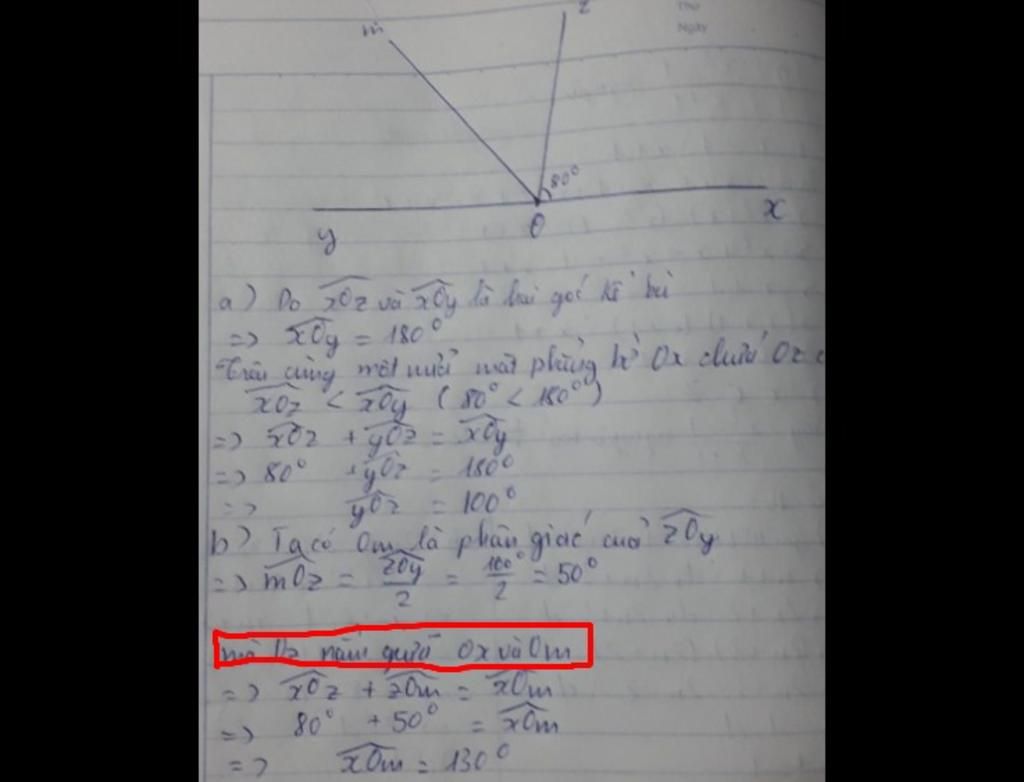 m z
Thứ
Ngày
80°
y O x
a) Do xOz và xOy là hai góc kề bù
=> xOy = 180°
Trên cùng một nửa mặt phẳng bờ Ox chứa Oz
xOz < xOy (80° < 180°)
=> xOz + yOz = xOy
=> 80° + yOz = 180°
=> yOz = 100°
b) Ta có Om là phân giác của zOy
=> mOz = zOy/2 = 100°/2 = 50°
mà Oz nằm giữa Ox và Om
=> xOz + zOm = xOm
=> 80° + 50° = xOm
=> xOm = 130°